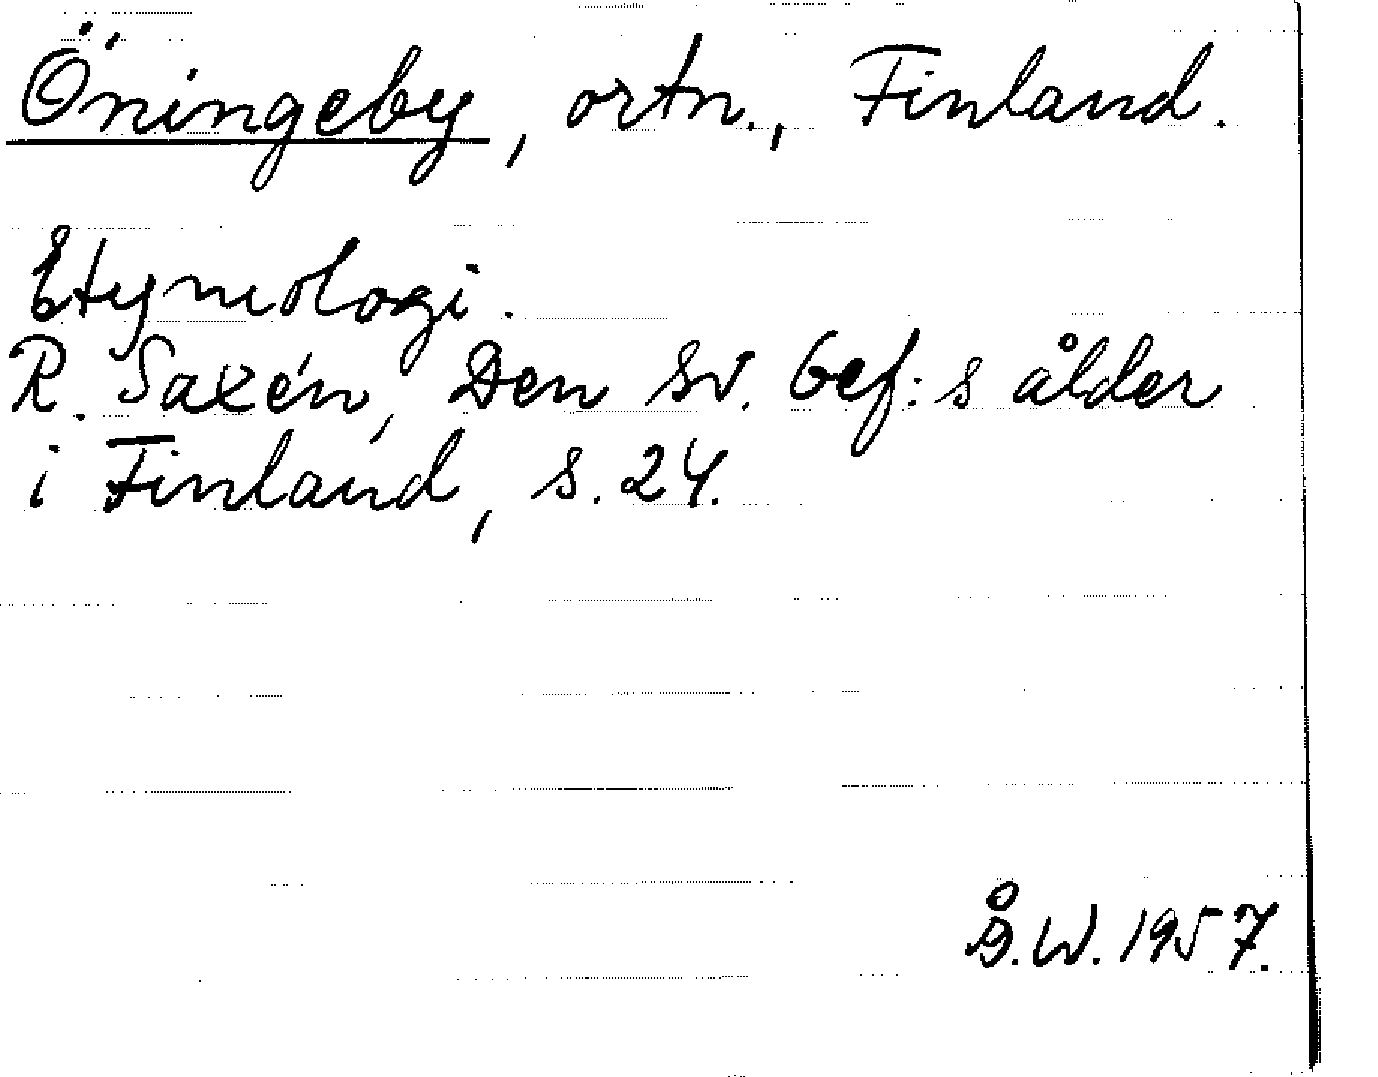 Öningeby, ortn., Finland.
Etymologi.
R. Saxén, Den sv. bef:s ålder
i Finland, s. 24.
Å.W. 1957.